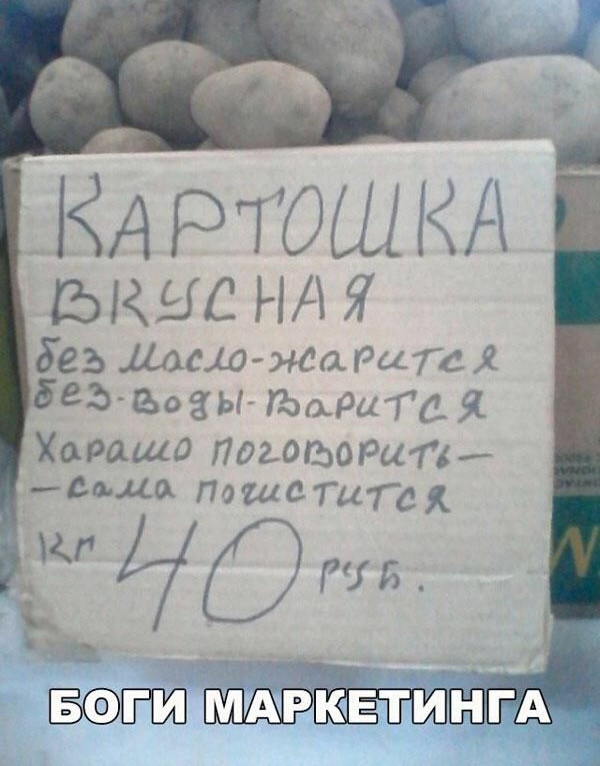 КАРТОШКА
ВКУСНАЯ
без Масло-жарится
без-Воды-Варится
Харашо поговорить—
—сама почистится
кг 40 руб.
БОГИ МАРКЕТИНГА